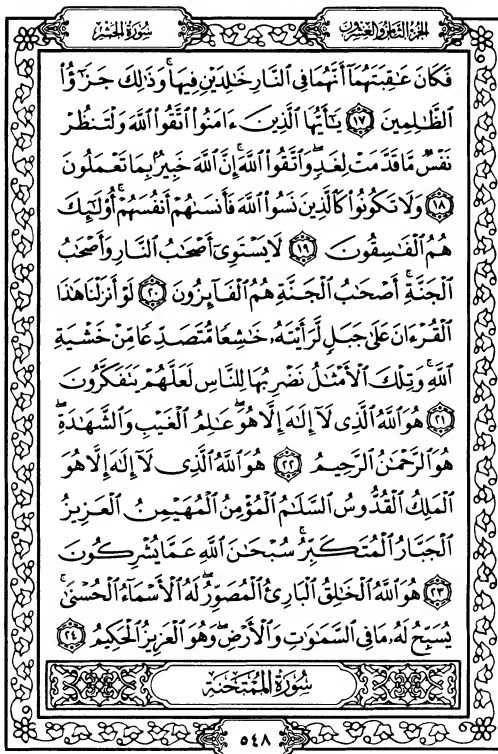 سُورَةُ الحَشْرِ
الجُزْءُ الثَّامِنُ وَالعِشْرُونَ
فَكَانَ عَٰقِبَتَهُمَآ أَنَّهُمَا فِى ٱلنَّارِ خَٰلِدَيْنِ فِيهَا ۚ وَذَٰلِكَ جَزَٰٓؤُا۟
ٱلظَّٰلِمِينَ ١٧ يَٰٓأَيُّهَا ٱلَّذِينَ ءَامَنُوا۟ ٱتَّقُوا۟ ٱللَّهَ وَلْتَنظُرْ
نَفْسٌ مَّا قَدَّمَتْ لِغَدٍ ۖ وَٱتَّقُوا۟ ٱللَّهَ ۚ إِنَّ ٱللَّهَ خَبِيرٌۢ بِمَا تَعْمَلُونَ
١٨ وَلَا تَكُونُوا۟ كَٱلَّذِينَ نَسُوا۟ ٱللَّهَ فَأَنسَىٰهُمْ أَنفُسَهُمْ ۚ أُو۟لَٰٓئِكَ
هُمُ ٱلْفَٰسِقُونَ ١٩ لَا يَسْتَوِىٓ أَصْحَٰبُ ٱلنَّارِ وَأَصْحَٰبُ
ٱلْجَنَّةِ ۚ أَصْحَٰبُ ٱلْجَنَّةِ هُمُ ٱلْفَآئِزُونَ ٢٠ لَوْ أَنزَلْنَا هَٰذَا
ٱلْقُرْءَانَ عَلَىٰ جَبَلٍ لَّرَأَيْتَهُۥ خَٰشِعًا مُّتَصَدِّعًا مِّنْ خَشْيَةِ
ٱللَّهِ ۚ وَتِلْكَ ٱلْأَمْثَٰلُ نَضْرِبُهَا لِلنَّاسِ لَعَلَّهُمْ يَتَفَكَّرُونَ
٢١ هُوَ ٱللَّهُ ٱلَّذِى لَآ إِلَٰهَ إِلَّا هُوَ ۖ عَٰلِمُ ٱلْغَيْبِ وَٱلشَّهَٰدَةِ ۖ
هُوَ ٱلرَّحْمَٰنُ ٱلرَّحِيمُ ٢٢ هُوَ ٱللَّهُ ٱلَّذِى لَآ إِلَٰهَ إِلَّا هُوَ
ٱلْمَلِكُ ٱلْقُدُّوسُ ٱلسَّلَٰمُ ٱلْمُؤْمِنُ ٱلْمُهَيْمِنُ ٱلْعَزِيزُ
ٱلْجَبَّارُ ٱلْمُتَكَبِّرُ ۚ سُبْحَٰنَ ٱللَّهِ عَمَّا يُشْرِكُونَ
٢٣ هُوَ ٱللَّهُ ٱلْخَٰلِقُ ٱلْبَارِئُ ٱلْمُصَوِّرُ ۖ لَهُ ٱلْأَسْمَآءُ ٱلْحُسْنَىٰ ۚ
يُسَبِّحُ لَهُۥ مَا فِى ٱلسَّمَٰوَٰتِ وَٱلْأَرْضِ ۖ وَهُوَ ٱلْعَزِيزُ ٱلْحَكِيمُ ٢٤
سُورَةُ المُمْتَحنَةِ
٥٤٨